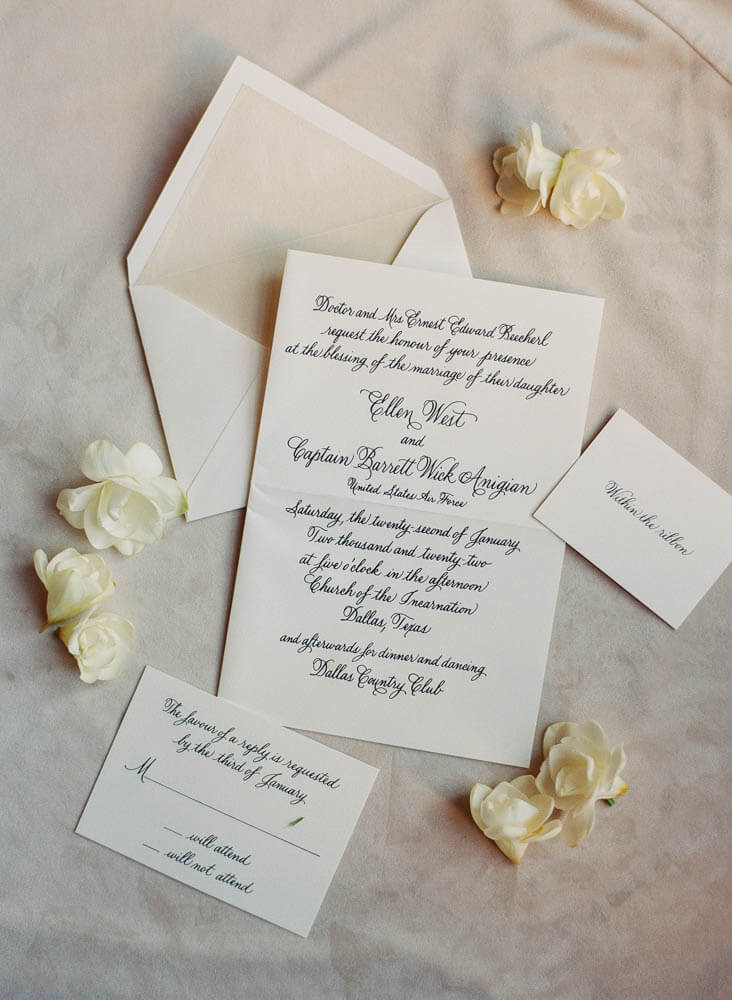 Doctor and Mrs Ernest Edward Beecherl
request the honour of your presence
at the blessing of the marriage of their daughter
Ellen West
and
Captain Barrett Wick Anigian
United States Air Force
Saturday, the twenty-second of January
Two thousand and twenty-two
at five o'clock in the afternoon
Church of the Incarnation
Dallas, Texas
and afterwards for dinner and dancing
Dallas Country Club
Within the ribbon
The favour of a reply is requested
by the third of January
M
will attend
will not attend